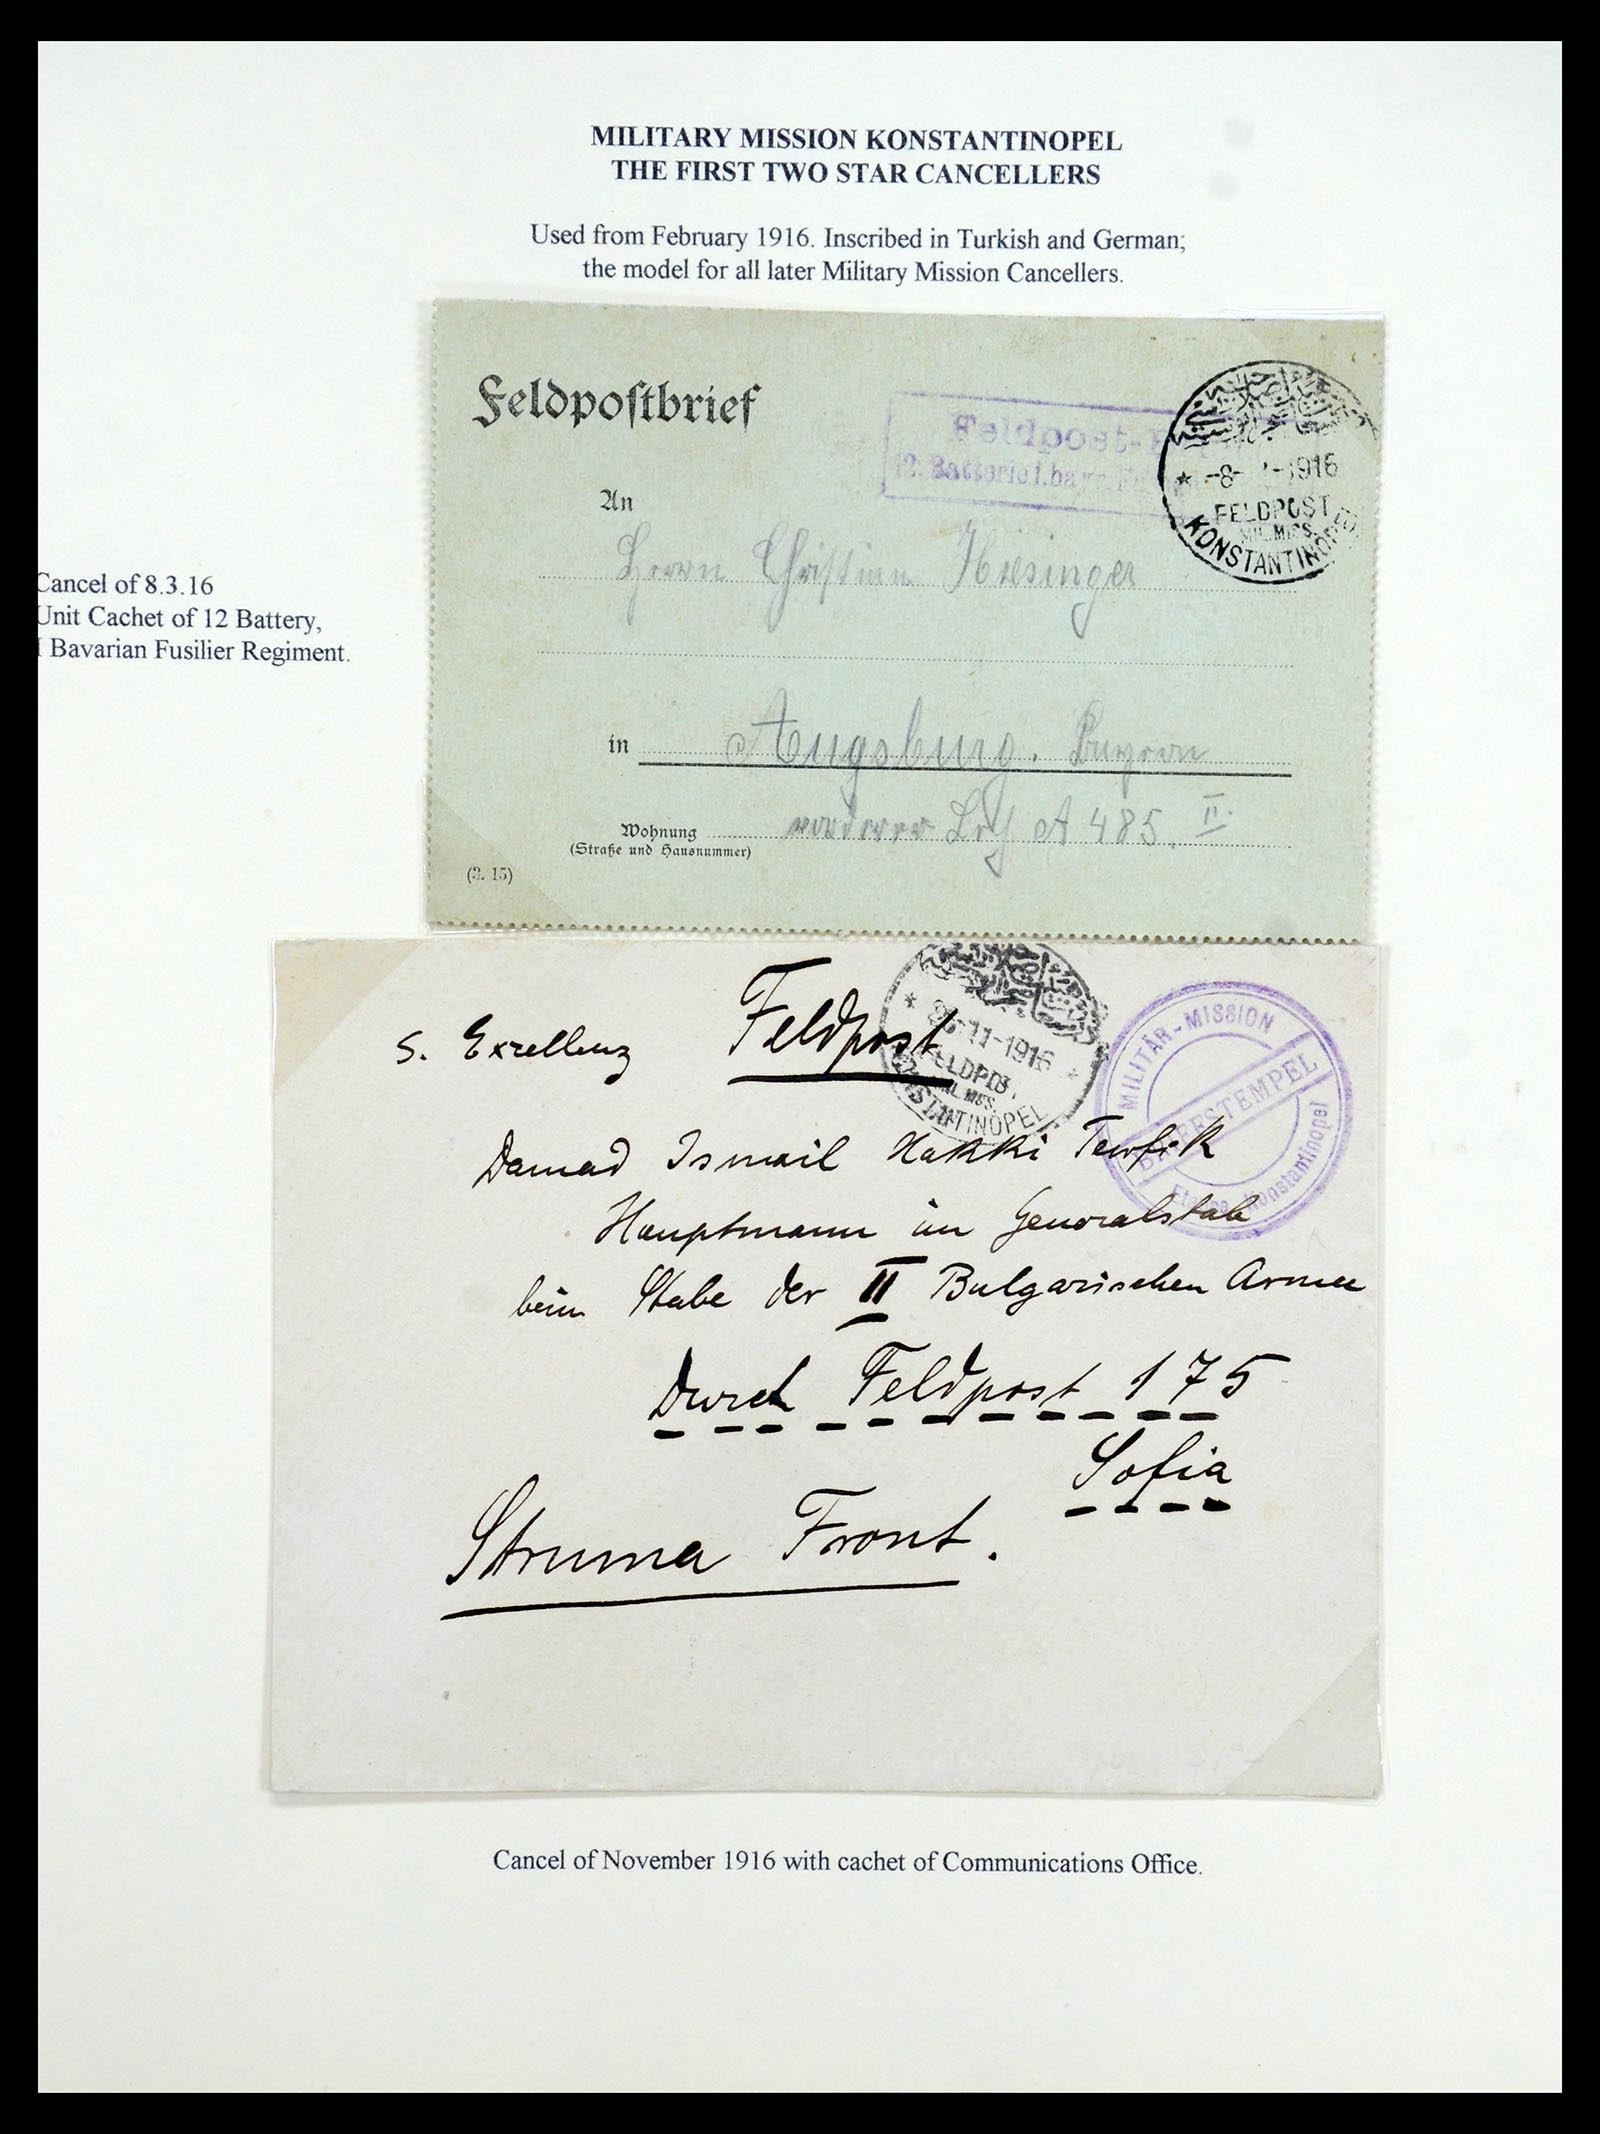 MILITARY MISSION KONSTANTINOPEL
THE FIRST TWO STAR CANCELLERS
Used from February 1916. Inscribed in Turkish and German;
the model for all later Military Mission Cancellers.
Feldpostbrief
Feldpost-
12. Batterie 1. bay
-8- -1916
FELDPOST
MIL.MISS.
KONSTANTINOPEL
An
Herrn Christian Hiesinger
Cancel of 8.3.16
Unit Cachet of 12 Battery,
I Bavarian Fusilier Regiment.
in Augsburg. Bayern
Wohnung
(Straße und Hausnummer)
vorderer Lech A 485 II.
(3. 15)
S. Exzellenz Feldpost
-11-1916
FELDPOS
MIL.MISS.
NSTANTINOPEL
MILITÄR-MISSION
BRIEFSTEMPEL
Etappe Konstantinopel
Damad Ismail Hakki Tewfik
Hauptmann im Generalstab
beim Stabe der II Bulgarischen Armee
Durch Feldpost 175
Sofia
Struma Front.
Cancel of November 1916 with cachet of Communications Office.